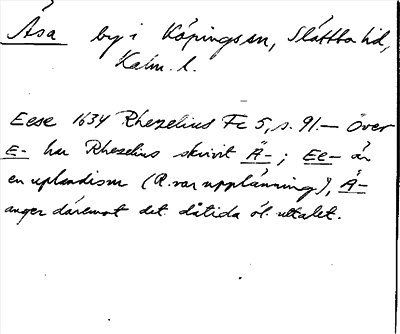 Åsa by i Köpings sn, Slättbo hd,
Kalm. l.
Eese 1634 Rhezelius Fc 5, s. 91. — Över
E- har Rhezelius skrivit Ä- ; Ee- är
en uplandism (R. var upplänning), Ä-
anger däremot det dåtida öl. uttalet.